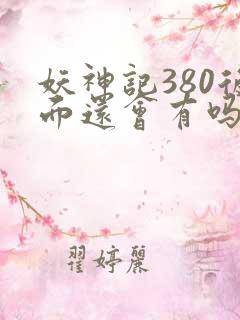 妖神記380後
而還會有吗
翟婷麗